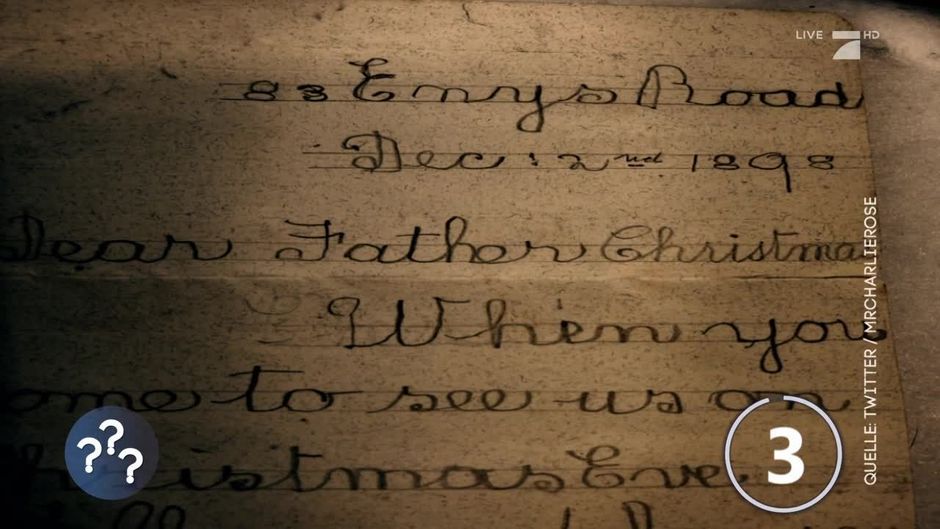 LIVE HD
83 Enys Road
Dec: 2nd 1898
Dear Father Christmas
When you
ome to see us on
hristmas Eve
3
???
QUELLE: TWITTER / MRCHARLIEROSE